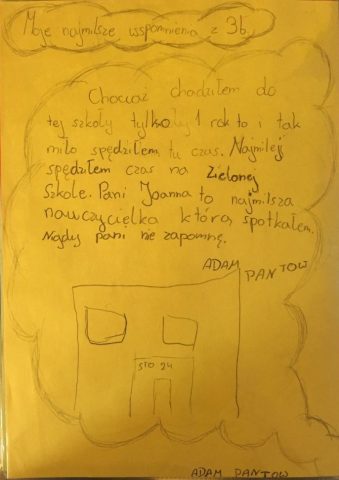 Moje najmilsze wspomnienia z 3b.
Chociaż chodziłem do
tej szkoły tylko 1 rok to i tak
miło spędziłem tu czas. Najmilej
spędziłem czas na Zielonej
Szkole. Pani Joanna to najmilsza
nauczycielka którą spotkałem.
Nigdy pani nie zapomnę.
ADAM
PANTOW
STO 24
ADAM PANTOW